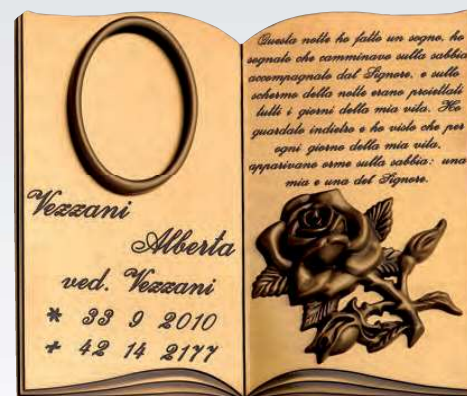 Vezzani
Alberta
ved. Vezzani
* 33 9 2010
+ 42 14 2177
Questa notte ho fatto un sogno, ho
sognato che camminavo sulla sabbia
accompagnato dal Signore, e sullo
schermo della notte erano proiettati
tutti i giorni della mia vita. Ho
guardato indietro e ho visto che per
ogni giorno della mia vita,
apparivano orme sulla sabbia: una
mia e una del Signore.